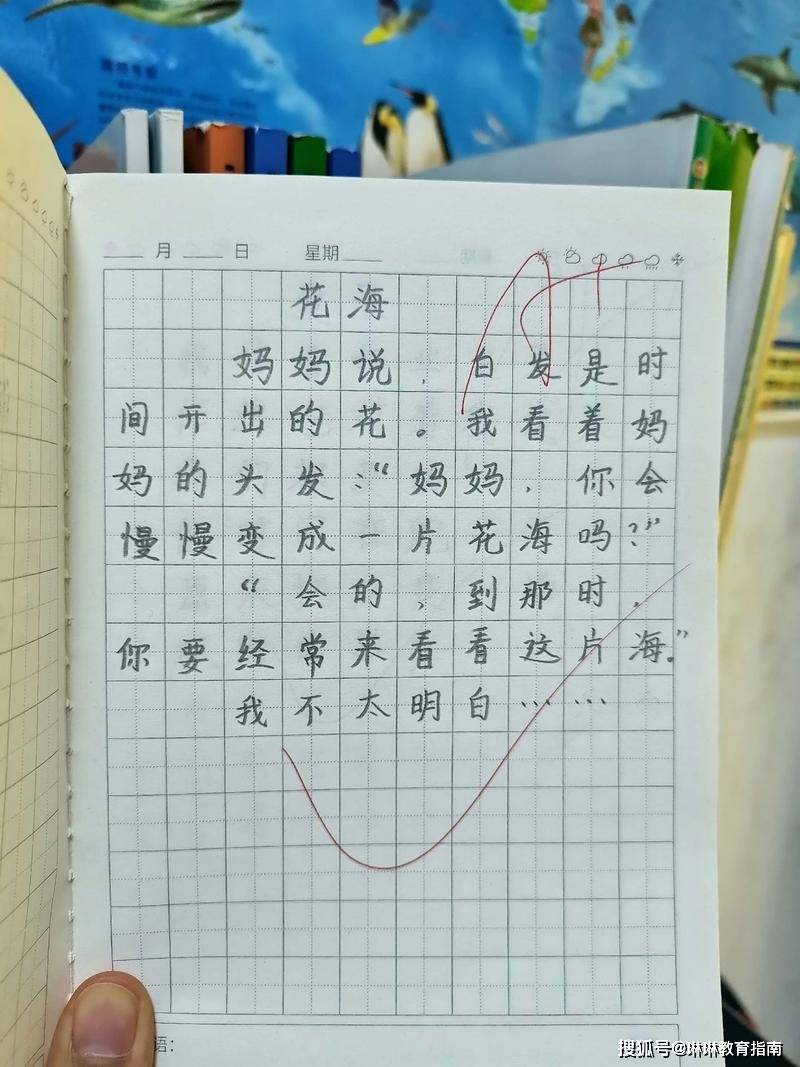 月 日 星期
花海
妈妈说，白发是时
间开出的花。我看着妈
妈的头发：“妈妈，你会
慢慢变成一片花海吗？”
“会的，到那时，
你要经常来看看这片海。”
我不太明白……
语：
搜狐号@琳琳教育指南